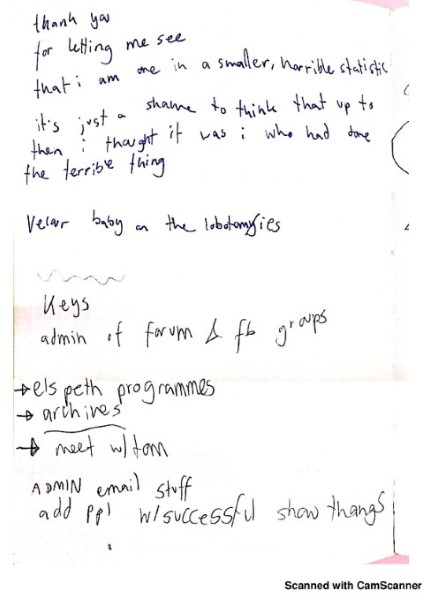 thank you
for letting me see
that i am one in a smaller, horrible statistic
it's just a shame to think that up to
then i thought it was i who had done
the terrible thing
baby on the lobotomyies
Keys
admin of forum & fb groups
→ elspeth programmes
→ archives
→ meet w/tom
ADMIN email stuff
add ppl w/successful show thangs
Scanned with CamScanner